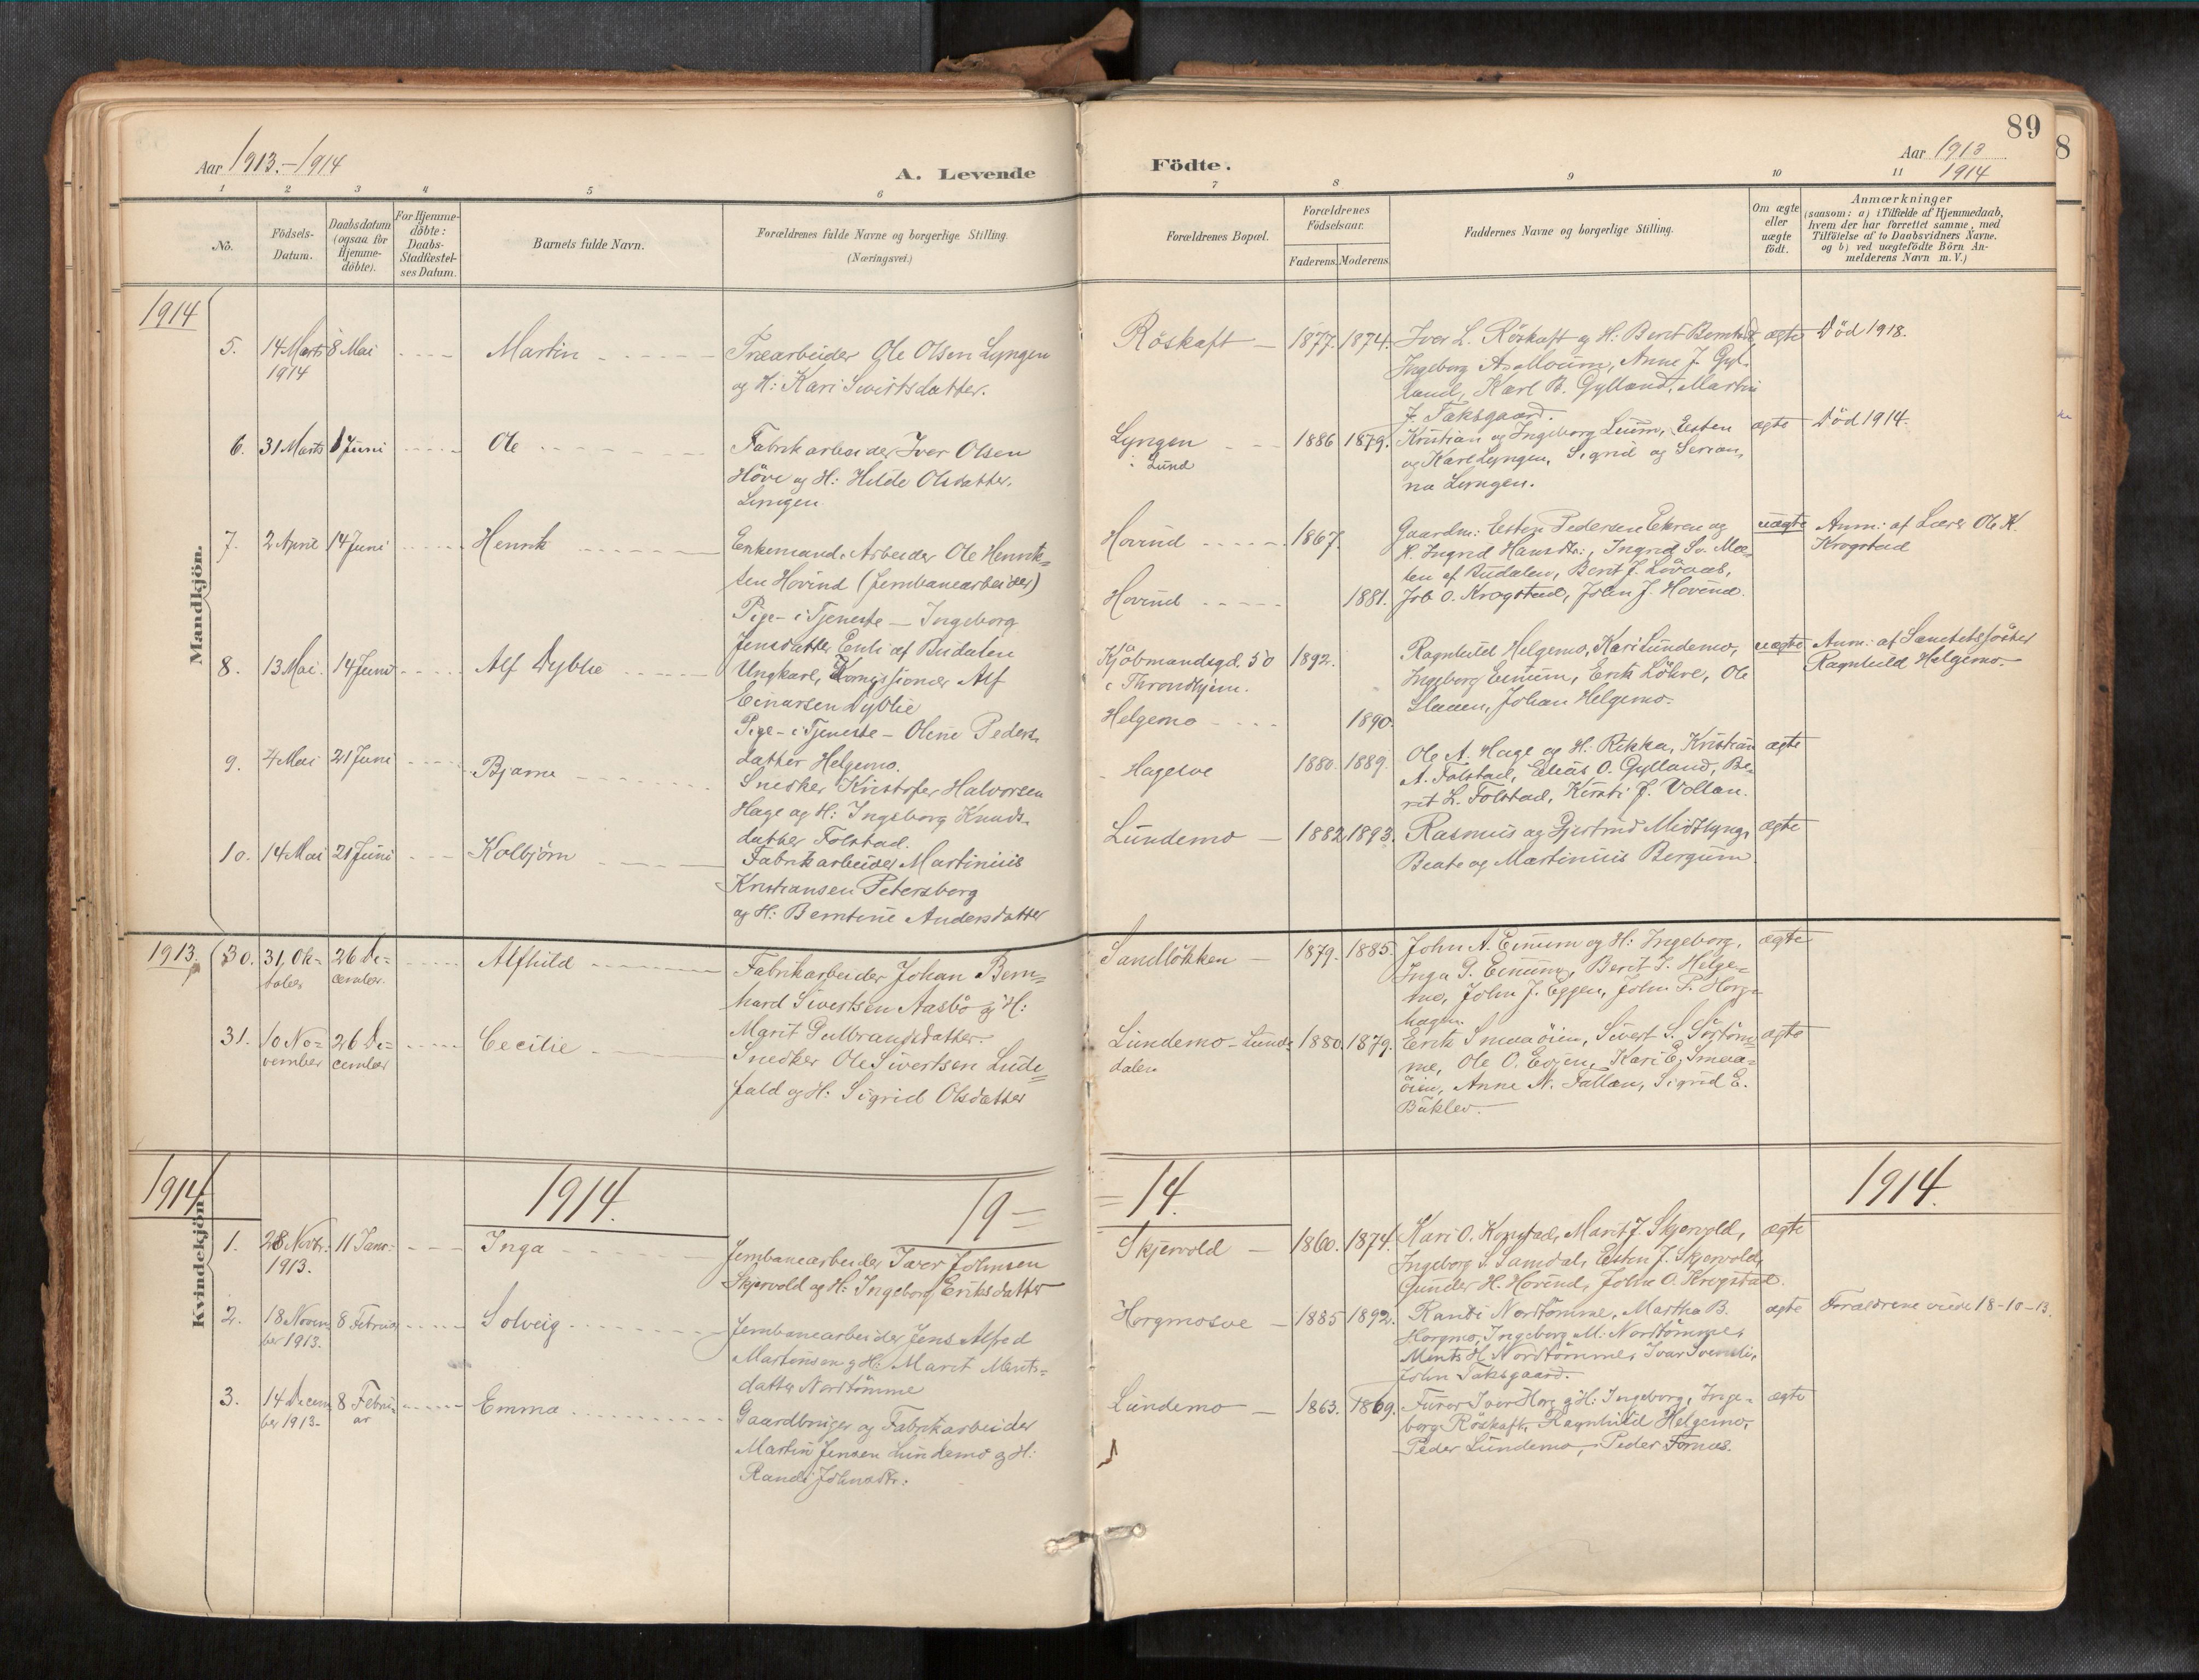 89
Aar 1913.-1914
A. Levende
Födte.
Aar 1913
1914
1 2 3 4 5 6 7 8 9 10 11
No.
Födsels-
Datum.
Daabsdatum
(ogsaa for
Hjemme-
döbte).
For Hjemme-
döbte:
Daabs-
Stadfæstel-
ses Datum.
Barnets fulde Navn.
Forældrenes fulde Navne og borgerlige Stilling.
(Næringsvei.)
Forældrenes Bopæl.
Forældrenes
Födselsaar.
Faderens. Moderens.
Faddernes Navne og borgerlige Stilling.
Om ægte
eller
uægte
födt.
Anmærkninger
(saasom: a) i Tilfælde af Hjemmedaab,
hvem der har forrettet samme, med
Tilföielse af to Daabsvidners Navne.
og b) ved uægtefödte Börn An-
melderens Navn m. V.)
1914
Mandkjön.
5. 14 Marts 8 Mai
1914
Martin
Træarbeider Ole Olsen Lyngen
og H: Kari Sivertsdatter.
Röskaft 1877. 1874.
Iver L. Röskaft og H: Berit
Ingeborg A. Moum, Anne J. Gyl-
land, Karl B. Gylland, Martin
J. Taksgaard.
ægte Död 1918.
6. 31 Marts 1 Juni
Ole
Fabrikarbeider Iver Olsen
Höve og H: Hilde Olsdatter
Lyngen
Lyngen
i Lund
1886 1879.
Kristian og Ingeborg Leum, Esten
og Karl Lyngen, Sigrid og Serian-
na Lyngen.
ægte Död 1914.
7. 2 April 14 Juni
Henrik
Enkemand, Arbeider Ole Henrik-
sen Hovind (Jernbanearbeider)
Pige - i Tjeneste - Ingeborg
Jensdatter Enli af Budalen
Hovind 1867.
Hovind 1881.
Gaardm: Esten Pedersen Ekren og
H. Ingrid Hansdtr:, Ingrid Sv. Moe-
ten af Budalen, Berit J. Lövaas,
Job O. Krogstad, John J. Hovind.
uægte Anm: af Lærer Ole K.
Krogstad
8. 13 Mai. 14 Juni
Alf Dyblie
Ungkarl, Alf
Einarsen Dyblie
Pige - i Tjeneste - Oline Peders-
datter Helgemo.
Kjöbmandsgd. 50
i Throndhjem. 1892.
Helgemo 1890.
Ragnhild Helgemo, Kari Lundemo,
Ingeborg Einum, Erik Löhre, Ole
Slaaen, Johan Helgemo.
uægte Anm: af Sanitetssöster
Ragnhild Helgemo.
9. 4 Mai 21 Juni
Bjarne
Snedker Kristofer Halvorsen
Hage og H: Ingeborg Knuds-
datter Folstad.
Hagesve 1880. 1889.
Ole A. Hage og H: Rikka, Kristian
A. Folstad, Elias O. Gylland, Be-
rit L. Folstad, Kirsti J. Vollan.
ægte
10. 14 Mai 21 Juni
Kolbjörn
Fabrikarbeider Martinius
Kristiansen Petersborg
og H: Berntine Andersdatter
Lundemo 1882 1893.
Rasmus og Gjertrud Midtlyng,
Beate og Martinius Bergum.
ægte
1913. 30. 31. Ok-
tober 26 De-
cember.
Alfhild
Fabrikarbeider Johan Bern-
hard Sivertsen Aasbö og H:
Marit Gulbrandsdatter.
Sandlökken 1879. 1885.
John A. Einum og H: Ingeborg,
Inga P. Einum, Berit I. Helge-
mo, John J. Eggen, John P. Horg-
hagen.
ægte
31. 10 No-
vember 26 De-
cember
Cecilie
Snedker Ole Sivertsen
og H: Sigrid Olsdatter
Lundemo - Lunds-
dalen 1880. 1879.
Erik Smaaöien, Sivert S. Sörtöm-
me, Ole O. Evjen, Kari E. Smaa-
öien, Anne N. Fallan, Sigrid E.
Buklev.
ægte
Kvindekjön.
1914 1914. 19 = = 14. 1914.
1. 28 Novbr: 11 Janr:
1913.
Inga
Jernbanearbeider Iver Johnsen
Skjervold og H: Ingeborg Eriksdatter
Skjervold 1860. 1874.
Kari O. Kornstad, Marit J. Skjervold,
Ingeborg S. Samdal, Esten J. Skjervold,
Gunder H. Hovind, John O. Krogstad.
ægte
2. 18 Novem-
ber 1913. 8 Februar
Solveig
Jernbanearbeider Jens Alfred
Martinsen og H: Marit Ments-
datter Nordtömme
Horgmosve 1885 1892.
Randi Nordtömme, Martha B.
Horgmo, Ingeborg M. Nordtömme,
Ments H. Nordtömme, Ivar Svendli,
John Taksgaard.
ægte Forældrene viede 18-10-13.
3. 14 Decem-
ber 1913. 8 Febru-
ar
Emma
Gaardbruger og Fabrikarbeider
Martin Jensen Lundemo og H:
Randi Johnsdtr:
Lundemo 1863. 1869.
Furer Iver Horg og H: Ingeborg, Inge-
borg Röskaft, Ragnhild Helgemo,
Peder Lundemo, Peder Fornes.
ægte